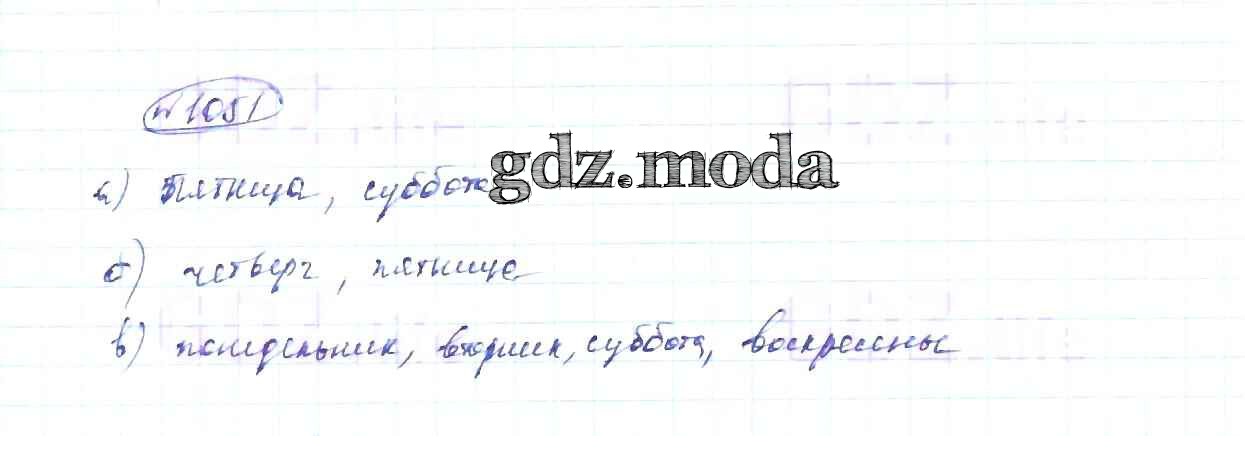 №1051
gdz.moda
а) пятница, суббота
б) четверг, пятница
в) понедельник, вторник, суббота, воскресены